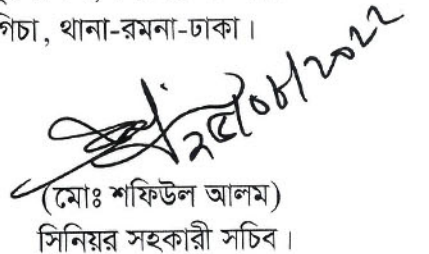 গিচা, থানা-রমনা-ঢাকা।
২৫/০৮/২০২২
(মোঃ শফিউল আলম)
সিনিয়র সহকারী সচিব।